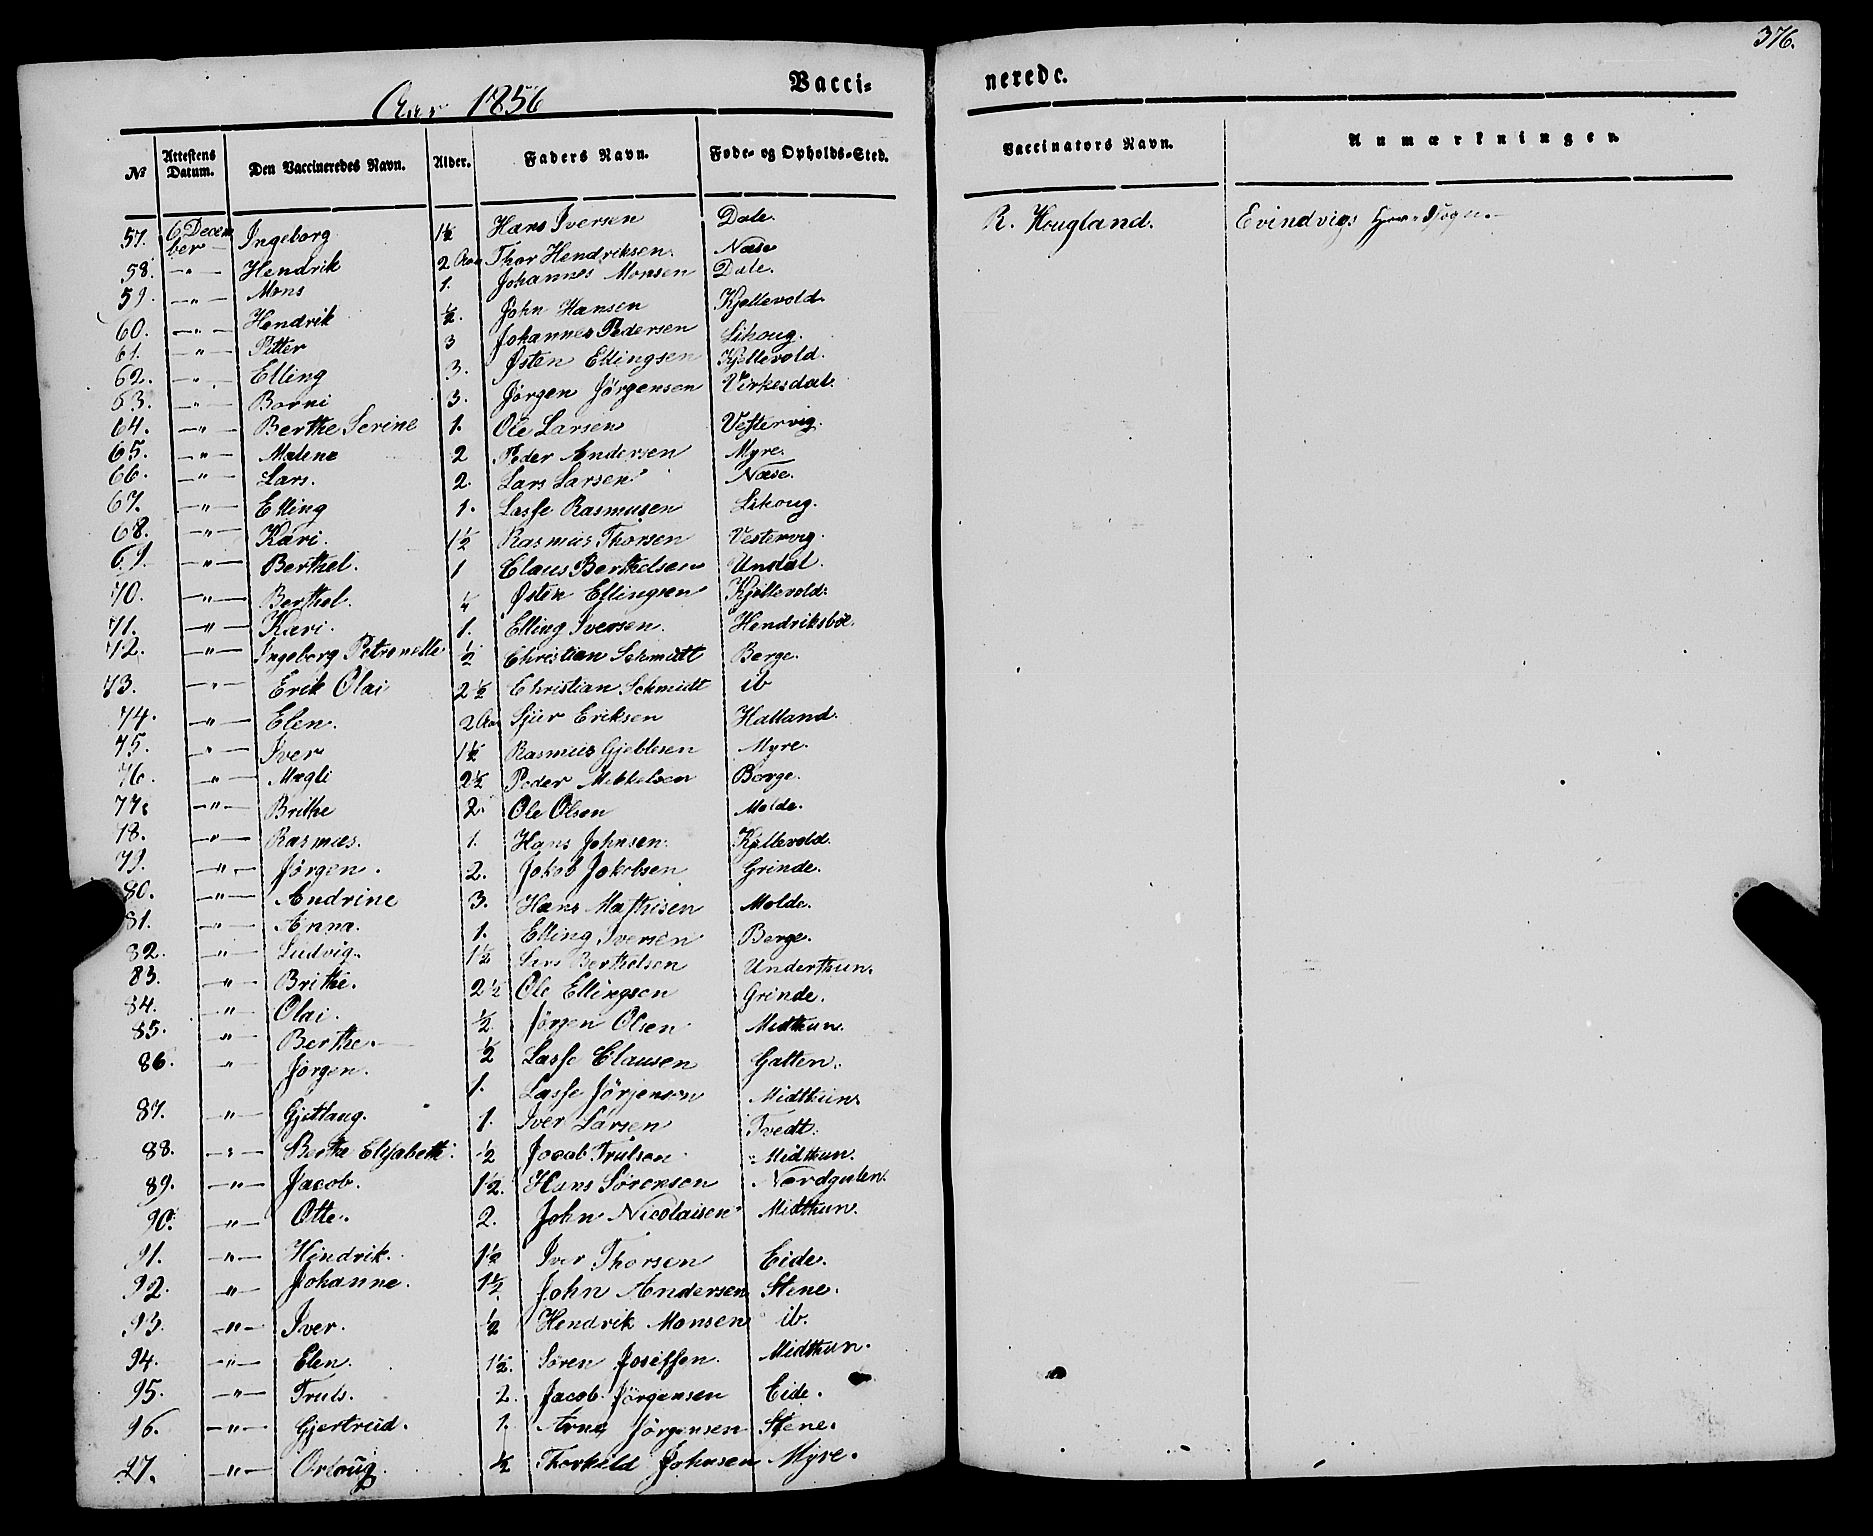 376.
Aar 1856 Vacci- nerede.
No Attestens Datum. Den Vaccineredes Navn. Alder. Faders Navn. Føde- og Opholds-Sted. Vaccinators Navn. Anmærkninger.
57. 6 Decem ber Ingeborg 1½ Hans Iversen Dale. R. Hougland. Evindvigs
58. -"- Hendrik 2 Aar Thor Hendriksen. Næse
59. -"- Mons 1. Johannes Monsen Dale.
60. -"- Hendrik ½. John Hansen Kjellevold.
61. -"- Pitter 3 Johannes Pedersen Lihoug.
62. -"- Elling 3. Østen Ellingsen Kjellevold.
63. -"- Borni 3. Jørgen Jørgensen Virkesdal.
64. -"- Berthe Serine 1. Ole Larsen Vestervig.
65. -"- Malene 2 Peder Andersen Myre.
66. -"- Lars. 2. Lars Larsen Næse.
67. -"- Elling 1. Lasse Rasmusen Lihoug.
68. -"- Kari. 1½ Rasmus Thorsen Vestervig.
69. -"- Berthel. 1 Claus Berthelsen Undal.
70. -"- Berthel. ¼ Østen Ellingsen Kjellevold.
71. -"- Kari. 1. Elling Iversen. Hendriksbøe.
72. -"- Ingeborg Petronelle ½ Christian Schmidt Berge.
73. -"- Erik Olai 2½ Christian Schmidt ib
74. -"- Elen. 2 Aar Sjur Eriksen Halland.
75. -"- Iver 1½ Rasmus Gjeblesen Myre.
76. -"- Magli 2½ Peder Mikkelsen Berge.
77. -"- Brithe 2. Ole Olsen Molde.
78. -"- Rasmus. 1. Hans Johnsen. Kjellevold.
79. -"- Jørgen. 2. Jakob Jakobsen Grinde.
80. -"- Andrine 3. Hans Mathisen Molde.
81. -"- Anna. 1. Elling Iversen Berge.
82. -"- Ludvig. 1½ Lars Berthelsen Underthun.
83. -"- Brithe. 2½ Ole Ellingsen Grinde.
84. -"- Olai. ½ Jørgen Olsen Midthun.
85. -"- Berthe. ½ Lasse Clausen Galten.
86. -"- Jørgen. 1. Lasse Jørjensen Midthun.
87. -"- Gjetlaug. 1. Iver Larsen Tvedt.
88. -"- Berthe Elisabeth. ½ Jacob Trulsen Midthun.
89. -"- Jacob. 1½. Hans Sørensen Nordgulen.
90. -"- Otte. 2. John Nicolaisen Midthun.
91. -"- Hendrik. 1½ Iver Thorsen Eide.
92. -"- Johanne. 1½ John Andersen Stene.
93. -"- Iver. ½ Hendrik Monsen ib.
94. -"- Elen. 1½. Søren Joseffen. Midthun.
95. -"- Truls. 2. Jacob Jørgensen Eide.
96. -"- Gjertrud. 1. Arne Jørgensen Stene.
97. -"- Orloug. ½ Thorkild Johnsen Myre.